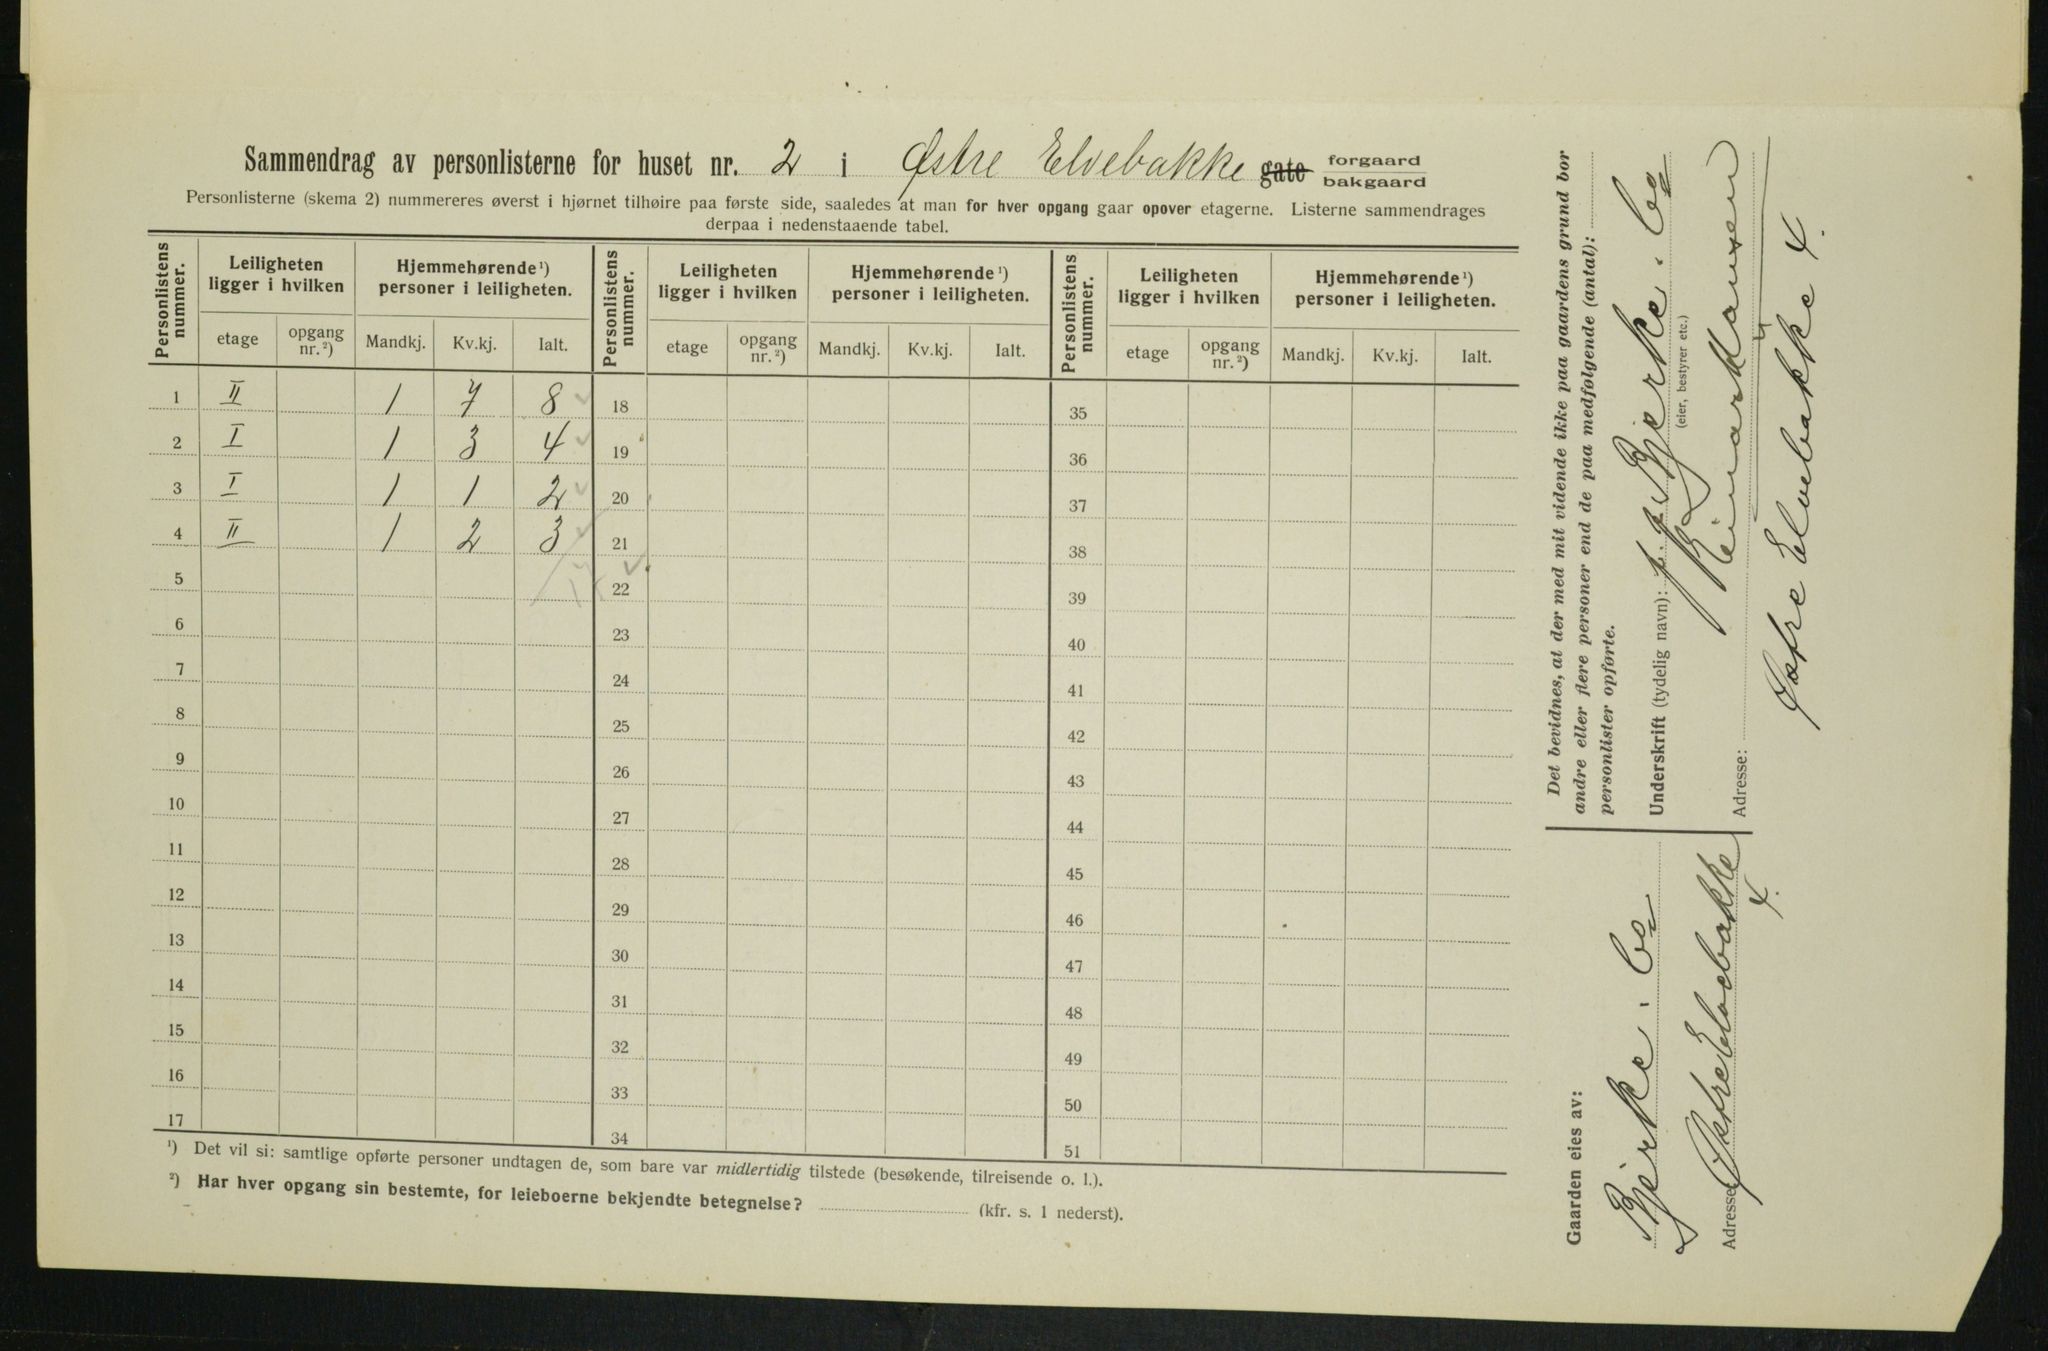 Sammendrag av personlisterne for huset nr. 2 i Østre Elvebakke gate forgaard
bakgaard
Personlisterne (skema 2) nummereres øverst i hjørnet tilhøire paa første side, saaledes at man for hver opgang gaar opover etagerne. Listerne sammendrages
derpaa i nedenstaaende tabel.
Personlistens nummer. Leiligheten ligger i hvilken Hjemmehørende ¹) personer i leiligheten. Personlistens nummer. Leiligheten ligger i hvilken Hjemmehørende ¹) personer i leiligheten. Personlistens nummer. Leiligheten ligger i hvilken Hjemmehørende ¹) personer i leiligheten.
etage opgang nr. ²) Mandkj. Kv.kj. Ialt. etage opgang nr. ²) Mandkj. Kv.kj. Ialt. etage opgang nr. ²) Mandkj. Kv.kj. Ialt.
1 II 1 7 8 ✓ 18 35
2 I 1 3 4 ✓ 19 36
3 I 1 1 2 ✓ 20 37
4 II 1 2 3 ✓ 21 38
5 17 ✓ 22 39
6 23 40
7 24 41
8 25 42
9 26 43
10 27 44
11 28 45
12 29 46
13 30 47
14 31 48
15 32 49
16 33 50
17 34 51
¹) Det vil si: samtlige opførte personer undtagen de, som bare var midlertidig tilstede (besøkende, tilreisende o. l.).
²) Har hver opgang sin bestemte, for leieboerne bekjendte betegnelse? (kfr. s. 1 nederst).
Det bevidnes, at der med mit vidende ikke paa gaardens grund bor
andre eller flere personer end de paa medfølgende (antal):
personlister opførte.
Underskrift (tydelig navn): p. p. Bjerke. Co
(eier, bestyrer etc.)
Adresse: Østre Elvebakke 4.
Gaarden eies av:
Bjerke. Co
Adresse Østre Elvebakke
4.